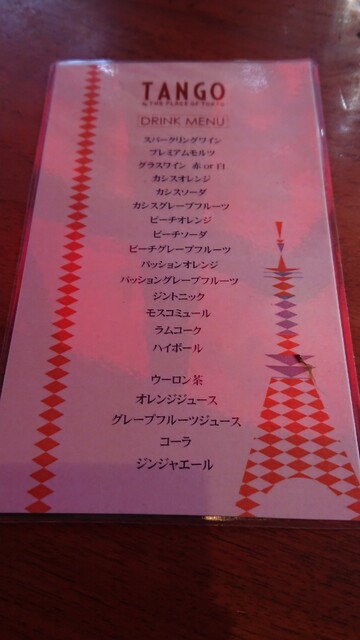 TANGO
by THE PLACE OF TOKYO
DRINK MENU
スパークリングワイン
プレミアムモルツ
グラスワイン 赤 or 白
カシスオレンジ
カシスソーダ
カシスグレープフルーツ
ピーチオレンジ
ピーチソーダ
ピーチグレープフルーツ
パッションオレンジ
パッショングレープフルーツ
ジントニック
モスコミュール
ラムコーク
ハイボール
ウーロン茶
オレンジジュース
グレープフルーツジュース
コーラ
ジンジャエール